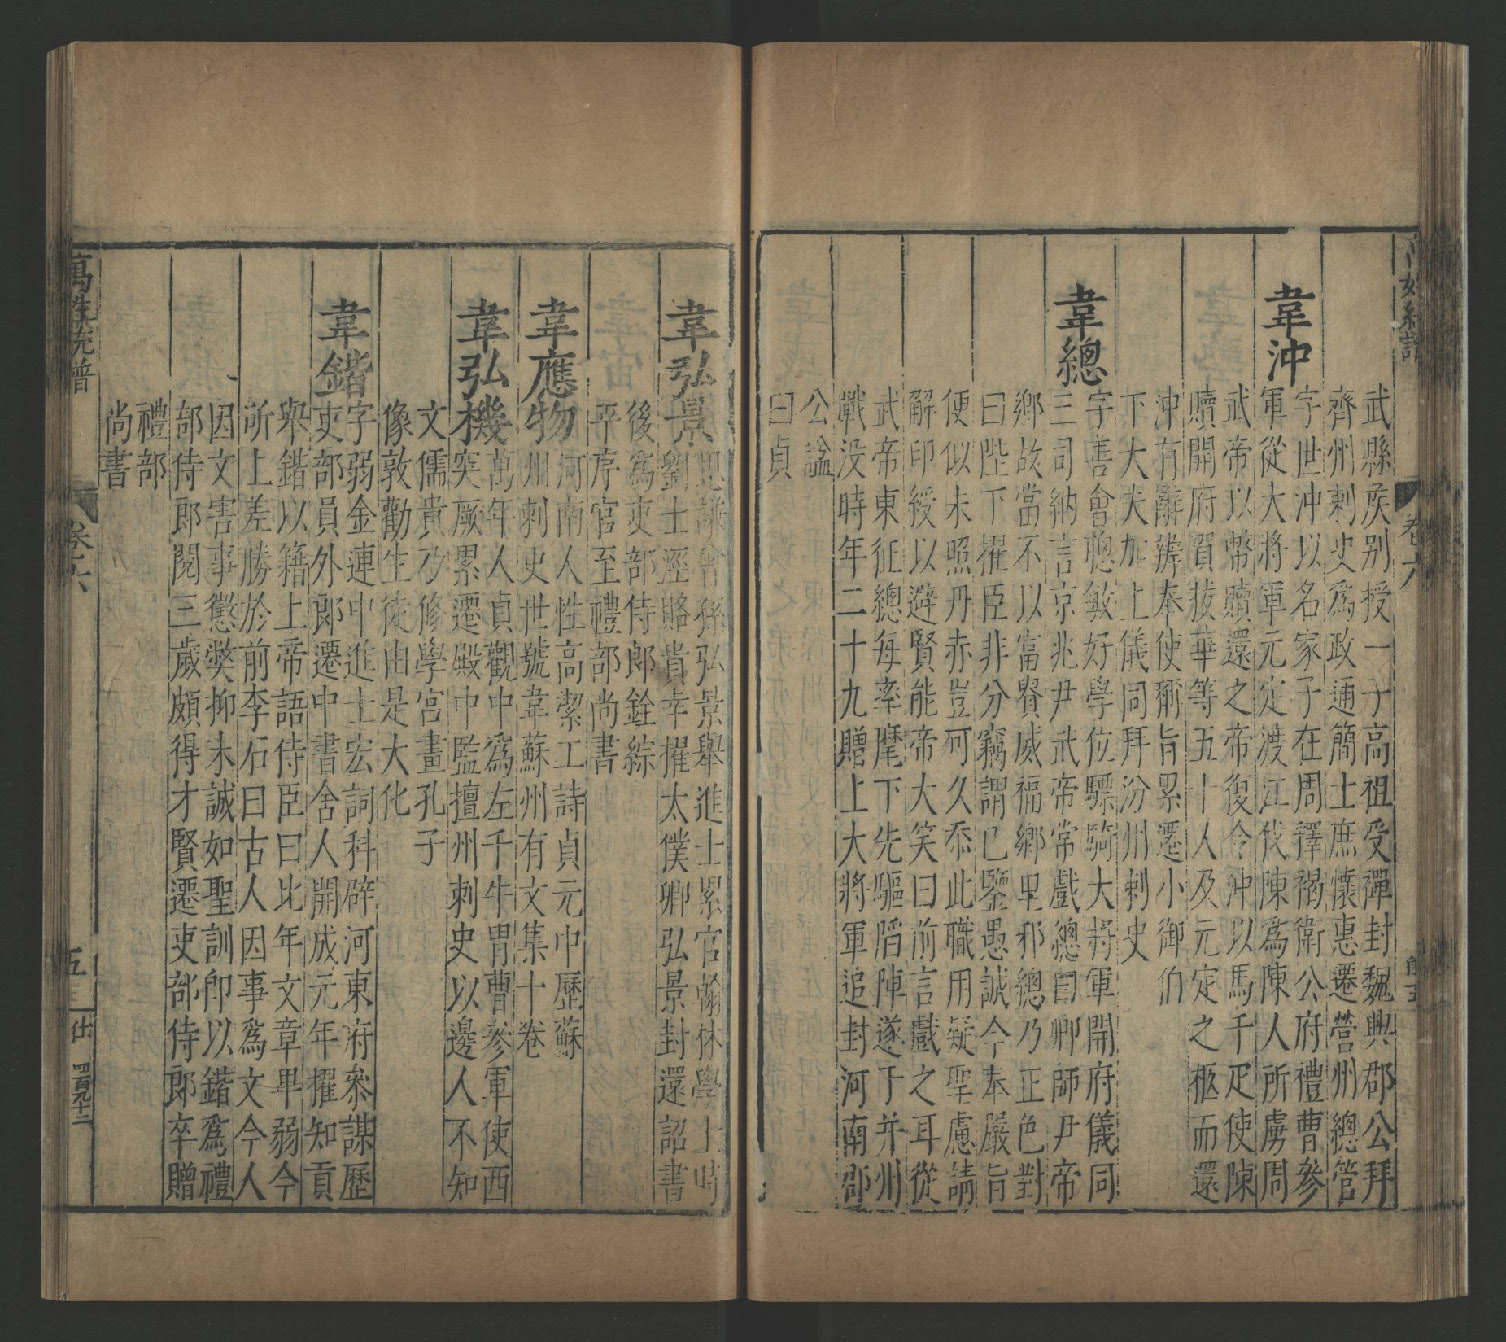 萬姓統譜
卷六
武縣侯别授一子高祖受禪封魏興郡公拜
齊州刺史爲政通簡士庶懷惠遷營州總管
韋沖
字世沖以名家子在周釋褐衛公府禮曹參
軍從大將軍元定渡江伐陳爲陳人所虜周
武帝以幣贖還之帝復令沖以馬千疋使陳
贖開府賀拔華等五十人及元定之柩而還
沖有辭辯奉使稱旨累遷小御伯
下大夫加上儀同拜汾州刺史
韋總
字善會聰敏好學位驃騎大將軍開府儀同
三司納言京兆尹武帝常戲總曰卿師尹帝
鄉故當不以富貴威福鄉里邪總乃正色對
曰陛下擢臣非分竊謂已鑒愚誠今奉嚴旨
便似未照丹赤豈可久忝此職用疑聖慮請
解印綬以避賢能帝大笑曰前言戲之耳從
武帝東征總每率麾下先驅陷陣遂于并州
戰没時年二十九贈上大將軍追封河南郡
公諡
曰貞
韋弘景
思謙曾孫弘景舉進士累官翰林學士時
劉士涇賂貴幸擢太僕卿弘景封還詔書
後爲吏部侍郎銓綜
平序官至禮部尚書
韋應物
河南人性高潔工詩貞元中歷蘇
州刺史世號韋蘇州有文集十卷
韋弘機
萬年人貞觀中爲左千牛胄曹參軍使西
突厥累遷殿中監擅州刺史以邊人不知
文儒貴乃修學宮畫孔子
像敦勸生徒由是大化
韋鍇
字弱金連中進士宏詞科辟河東府參謀歷
吏部員外郎遷中書舍人開成元年擢知貢
舉鍇以籍上帝語侍臣曰比年文章卑弱今
所上差勝於前李石曰古人因事爲文今人
因文害事懲獘抑末誠如聖訓卽以鍇爲禮
部侍郎閱三歲頗得才賢遷吏部侍郎卒贈
禮部
尚書
萬姓統譜
卷六
五